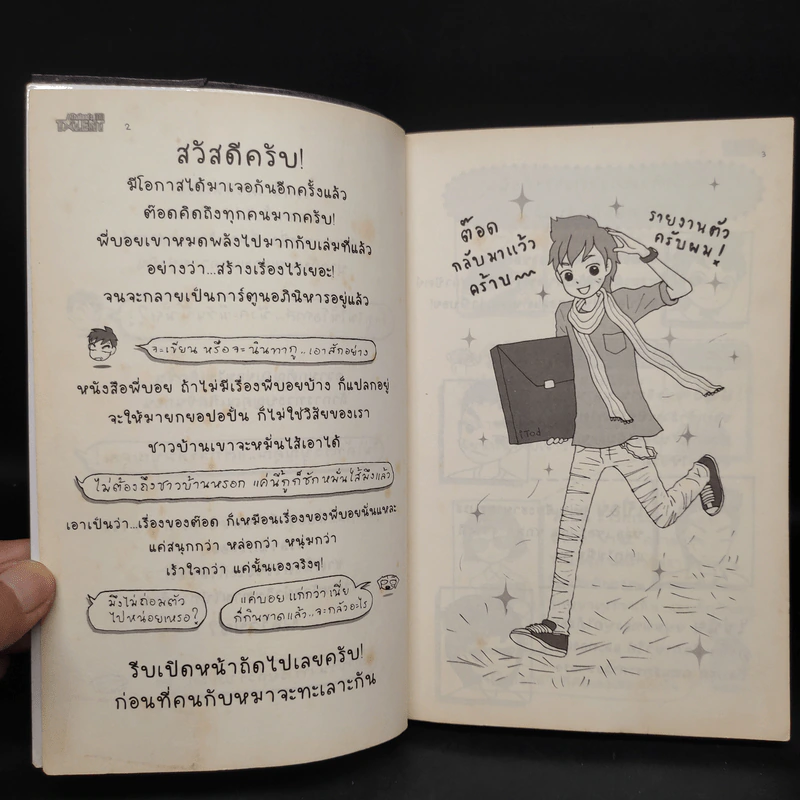 TALENT
2
สวัสดีครับ!
มีโอกาสได้มาเจอกันอีกครั้งแล้ว
ต๊อดคิดถึงทุกคนมากครับ!
พี่บอยเขาหมดพลังไปมากกับเล่มที่แล้ว
อย่างว่า...สร้างเรื่องไว้เยอะ!
จนจะกลายเป็นการ์ตูนอภินิหารอยู่แล้ว
จะเขียน หรือจะนินทากู..เอาสักอย่าง
หนังสือพี่บอย ถ้าไม่มีเรื่องพี่บอยบ้าง ก็แปลกอยู่
จะให้มายกยอปอปั้น ก็ไม่ใช่วิสัยของเรา
ชาวบ้านเขาจะหมั่นไส้เอาได้
ไม่ต้องถึงชาวบ้านหรอก แค่นี้กูก็ชักหมั่นไส้มึงแล้ว
เอาเป็นว่า...เรื่องของต๊อด ก็เหมือนเรื่องของพี่บอยนั่นแหละ
แค่สนุกกว่า หล่อกว่า หนุ่มกว่า
เร้าใจกว่า แค่นั้นเองจริงๆ!
มึงไม่ถ่อมตัว
ไปหน่อยเหรอ?
แค่บอย แก่กว่าเนี่ย
ก็กินขาดแล้ว..จะกลัวอะไร
รีบเปิดหน้าถัดไปเลยครับ!
ก่อนที่คนกับหมาจะทะเลาะกัน
3
ต๊อด
กลับมาแว้ว
คร้าบ~~
รายงานตัว
ครับผม!